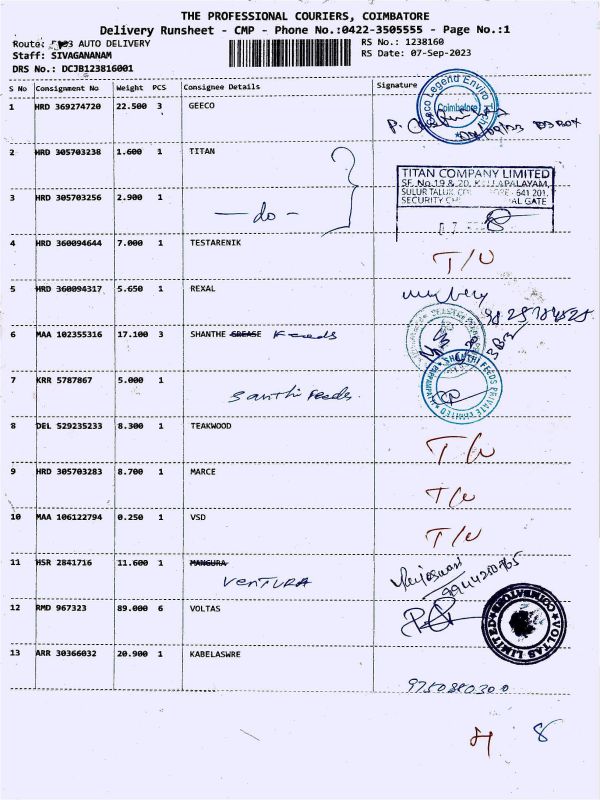 THE PROFESSIONAL COURIERS, COIMBATORE
Delivery Runsheet - CMP - Phone No.:0422-3505555 - Page No.:1
Route: AUTO DELIVERY
RS No.: 1238160
Staff: SIVAGANANAM
RS Date: 07-Sep-2023
DRS No.: DCJB123816001
S No Consignment No Weight PCS Consignee Details Signature
1 HRD 369274720 22.500 3 GEECO
Geeco Legend Enviro
Coimbatore
B3 BOX
2 HRD 305703238 1.600 1 TITAN
TITAN COMPANY LIMITED
SF. No.19 & 20, KALLAPALAYAM,
SULUR TALUK, 641 201.
SECURITY GATE
3 HRD 305703256 2.900 1
- do -
4 HRD 360094644 7.000 1 TESTARENIK
T/U
5 HRD 360094317 5.650 1 REXAL
6 MAA 102355316 17.100 3 SHANTHE GREASE Feeds
7 KRR 5787867 5.000 1
Santhi Feeds.
SHANTHI FEEDS PRIVATE LIMITED
8 DEL 529235233 8.300 1 TEAKWOOD
T/U
9 HRD 305703283 8.700 1 MARCE
T/U
10 MAA 106122794 0.250 1 VSD
T/U
11 HSR 2841716 11.600 1 MANGURA
VENTURA
12 RMD 967323 89.000 6 VOLTAS
VOLTAS LIMITED COIMBATORE
13 ARR 30366032 20.900 1 KABELASWRE
9750880300
8